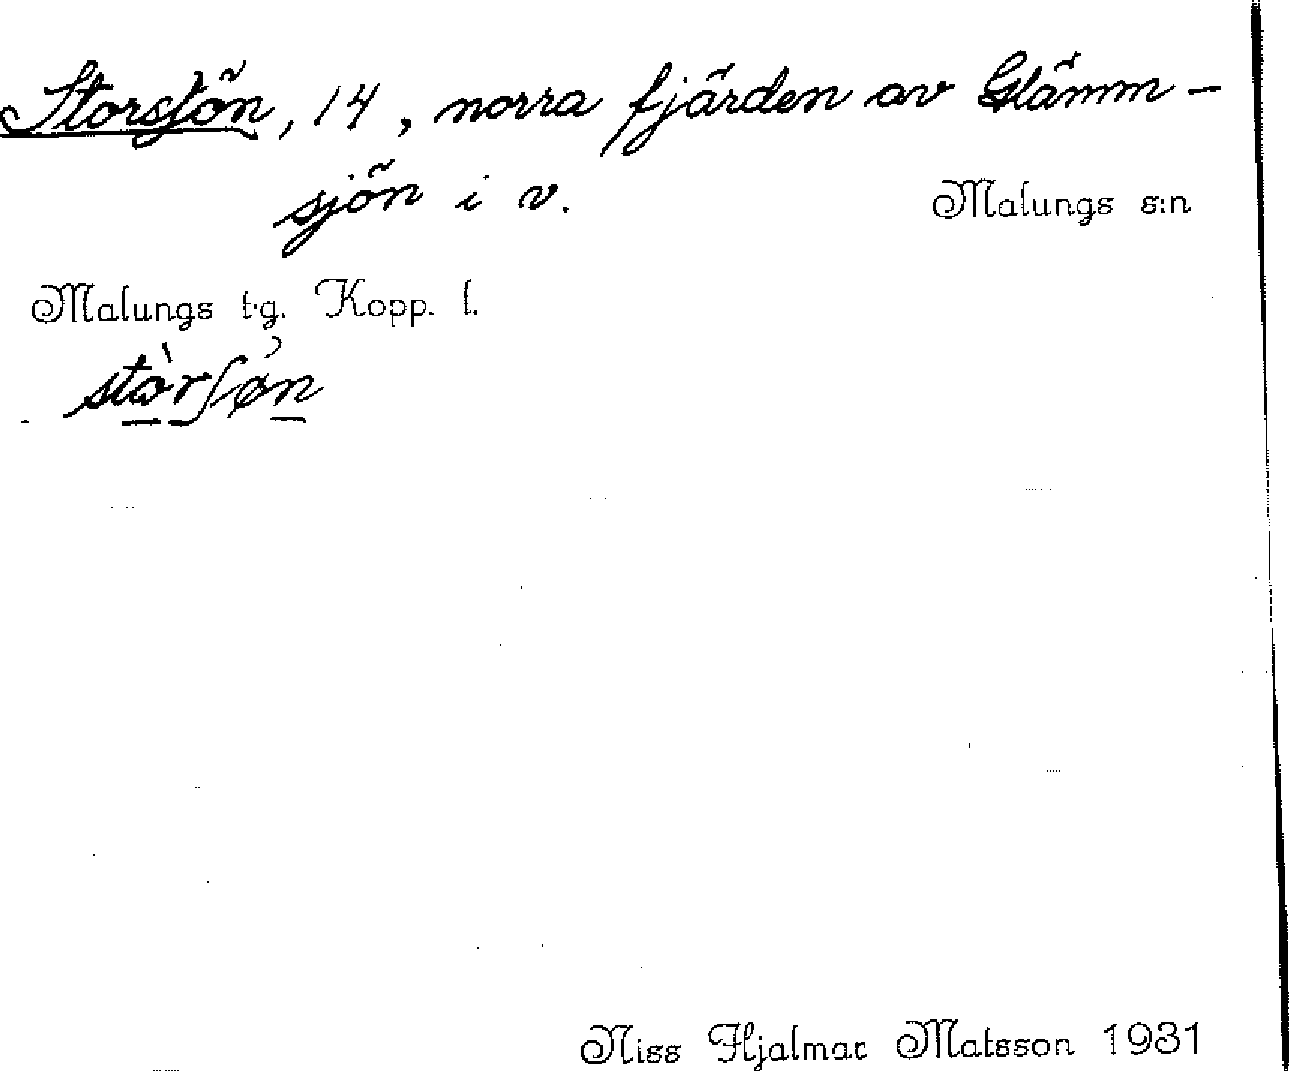 Storsjön, 14, norra fjärden av Glämm-
sjön i v.
Malungs s:n
Malungs t.g. Kopp. l.
stòrʃøn
Niss Hjalmar Matsson 1931